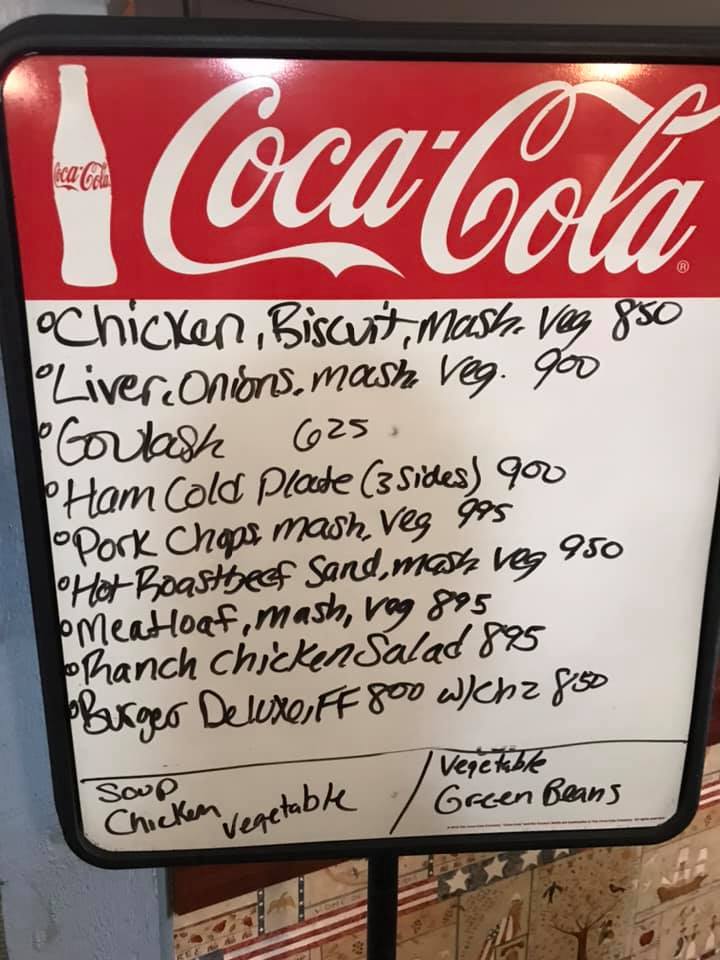 Coca-Cola
Coca-Cola ®
°Chicken, Biscuit, mash. Veg 850
°Liver, Onions, mash, Veg. 900
°Goulash 625
°Ham Cold Plate (3 sides) 900
°Pork Chops mash, Veg 995
°Hot Roastbeef Sand, mash veg 950
°Meatloaf, mash, veg 895
°Ranch Chicken Salad 895
°Burger Deluxe, FF 800 w/chz 850
Soup
Chicken Vegetable /
Vegetable
Green Beans